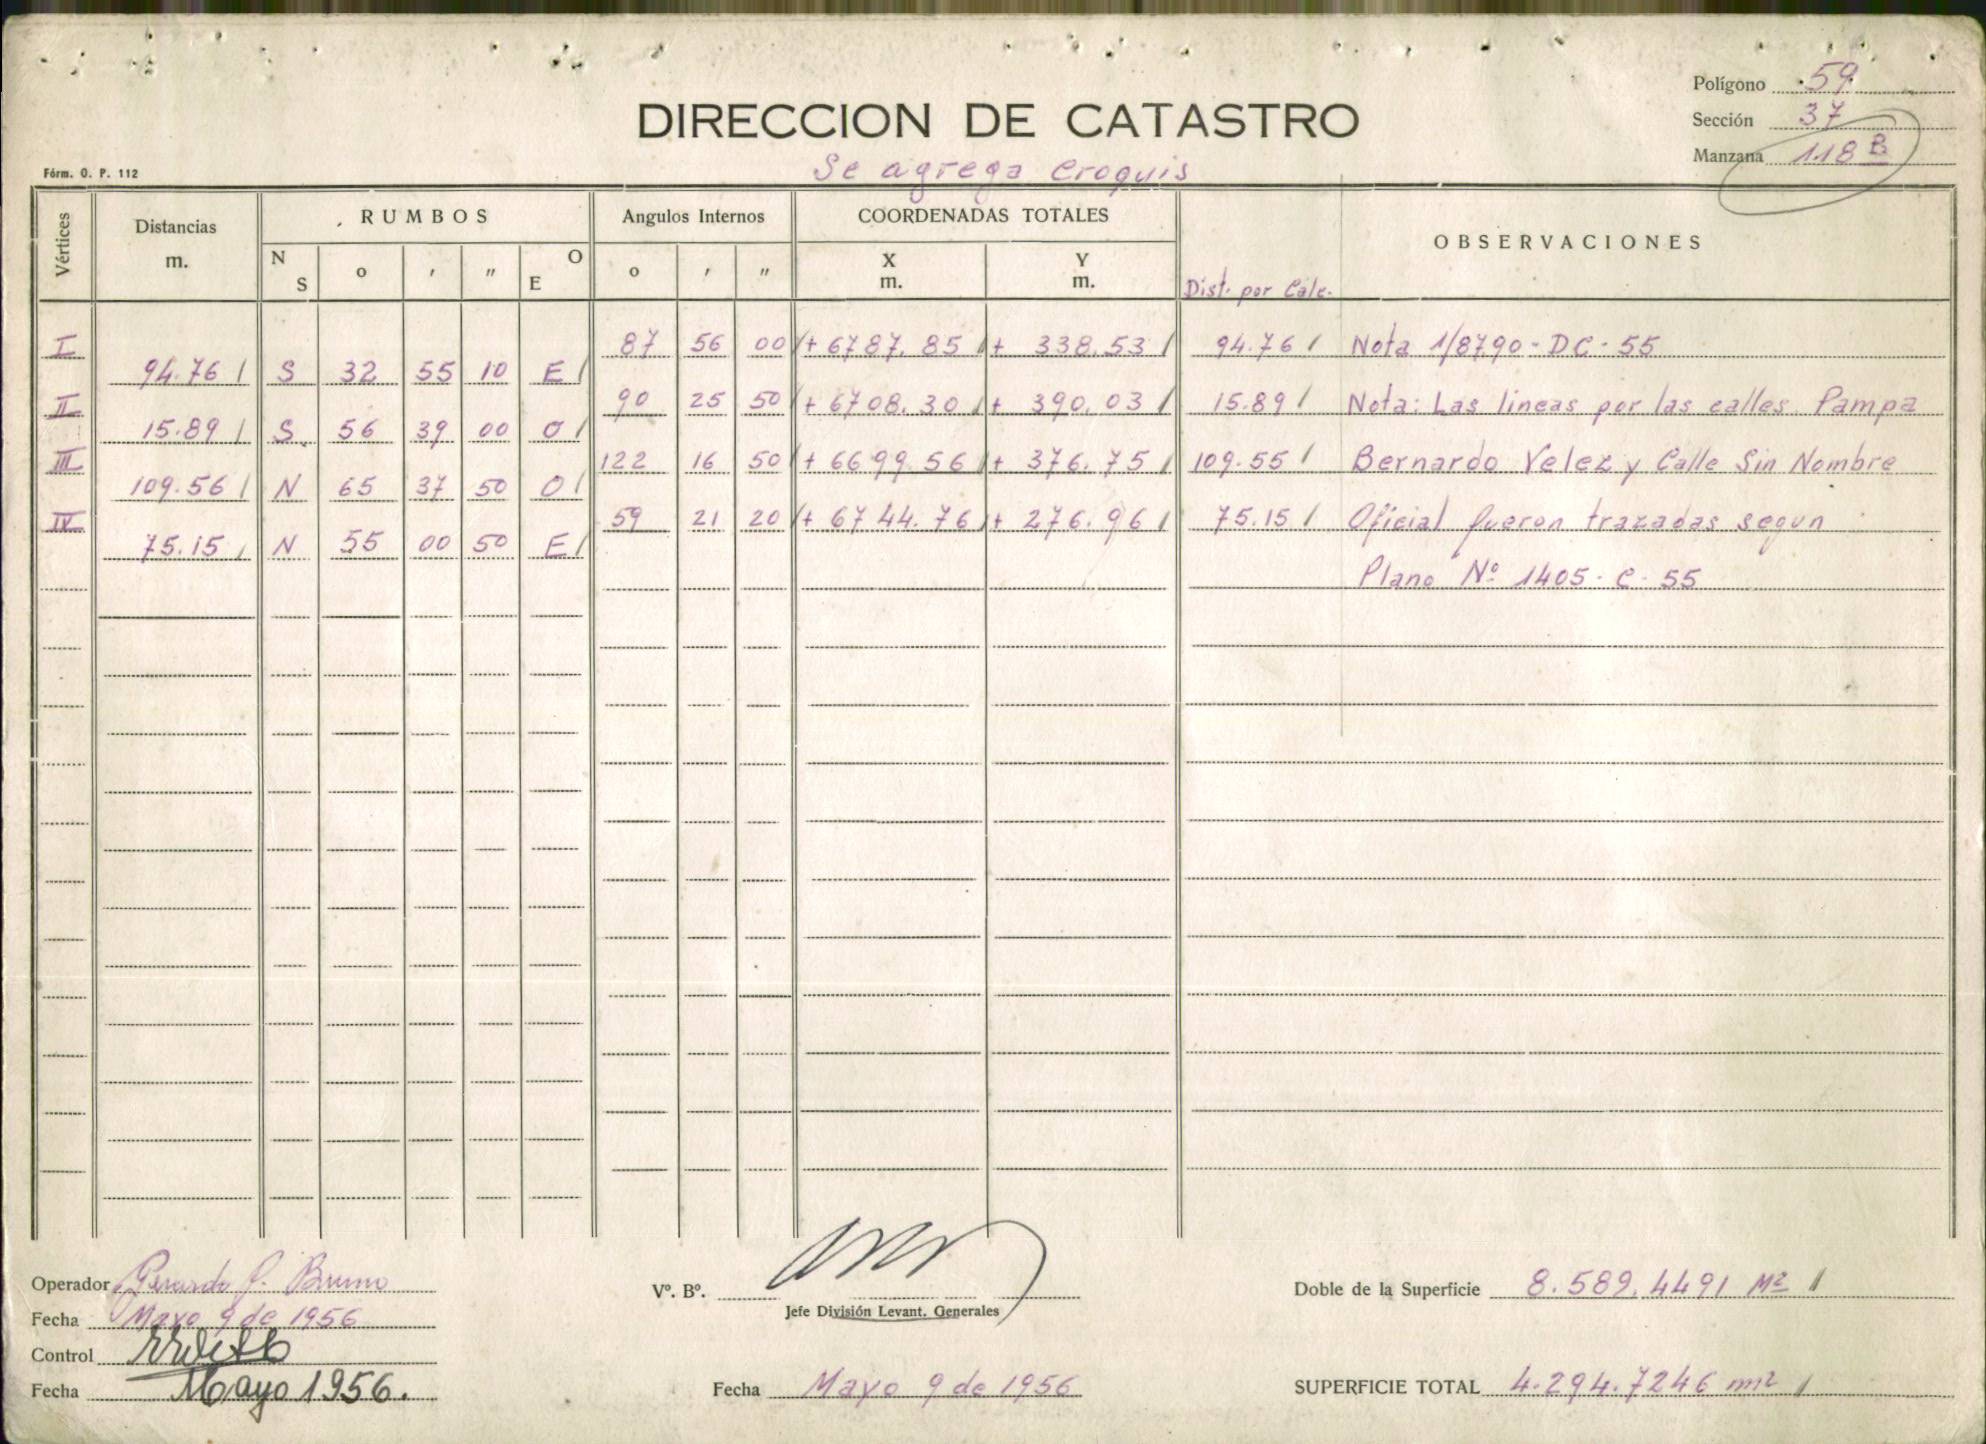 Polígono 59
DIRECCION DE CATASTRO
Sección 37
Manzana 118 B
Se agrega croquis
Fórm. O. P. 112
Vértices Distancias m. RUMBOS Angulos Internos COORDENADAS TOTALES OBSERVACIONES
N S o ' " O E o ' " X m. Y m. Dist. por Calc.
I 87 56 00 + 6787.85 + 338.53 94.76 Nota 1/8790-DC-55
94.76 S 32 55 10 E
II 90 25 50 + 6708.30 + 390.03 15.89 Nota: Las lineas por las calles Pampa
15.89 S 56 39 00 O
III 122 16 50 + 6699.56 + 376.75 109.55 Bernardo Velez y Calle Sin Nombre
109.56 N 65 37 50 O
IV 59 21 20 + 6744.76 + 276.96 75.15 Oficial fueron trazadas segun
75.15 N 55 00 50 E
Plano Nº 1405-C-55
Operador Gerardo Bruno
Vº. Bº.
Doble de la Superficie 8.589,4491 M2
Fecha Mayo 9 de 1956
Jefe División Levant. Generales
Control
Fecha Mayo 1956.
Fecha Mayo 9 de 1956
SUPERFICIE TOTAL 4.294.7246 m2